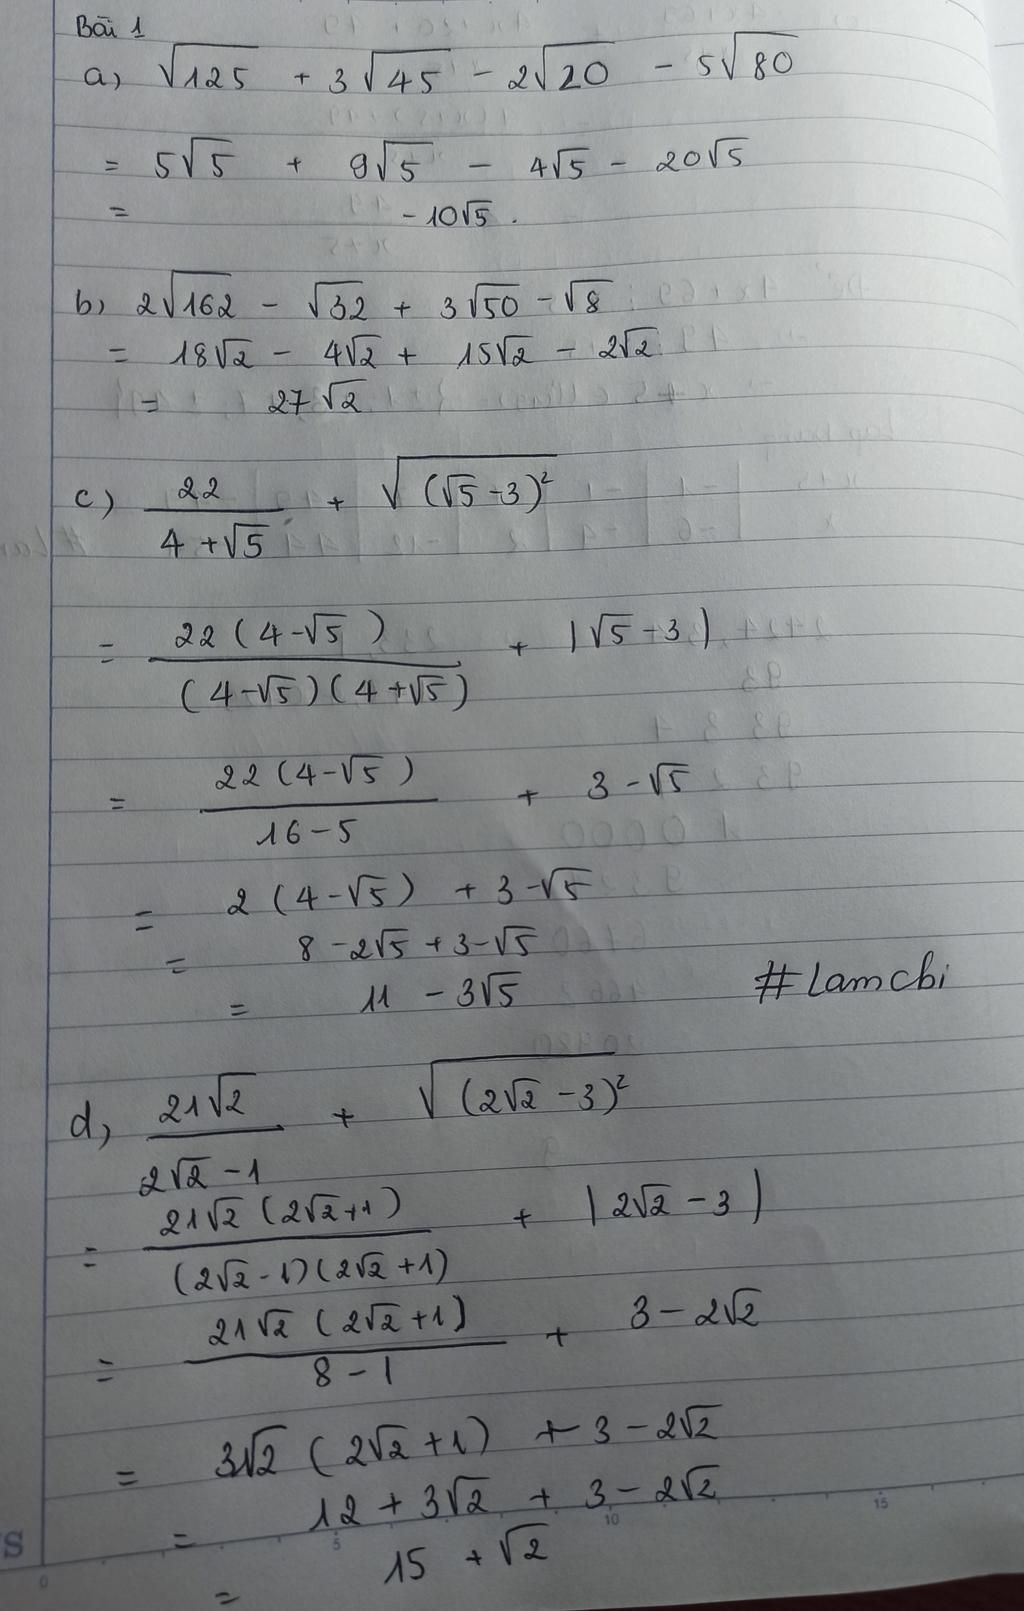 Bài 1
a, √125 + 3√45 - 2√20 - 5√80
= 5√5 + 9√5 - 4√5 - 20√5
= -10√5.
b, 2√162 - √32 + 3√50 - √8
= 18√2 - 4√2 + 15√2 - 2√2
= 27√2
c) 22/(4+√5) + √((√5-3)²)
= 22(4-√5)/((4-√5)(4+√5)) + |√5-3|
= 22(4-√5)/(16-5) + 3-√5
= 2(4-√5) + 3-√5
= 8-2√5+3-√5
= 11 - 3√5
#Lamchi
d, 21√2/(2√2-1) + √((2√2-3)²)
= 21√2(2√2+1)/((2√2-1)(2√2+1)) + |2√2-3|
= 21√2(2√2+1)/(8-1) + 3-2√2
= 3√2(2√2+1) + 3-2√2
= 12+3√2 + 3-2√2
= 15+√2
S
0 5 10 15